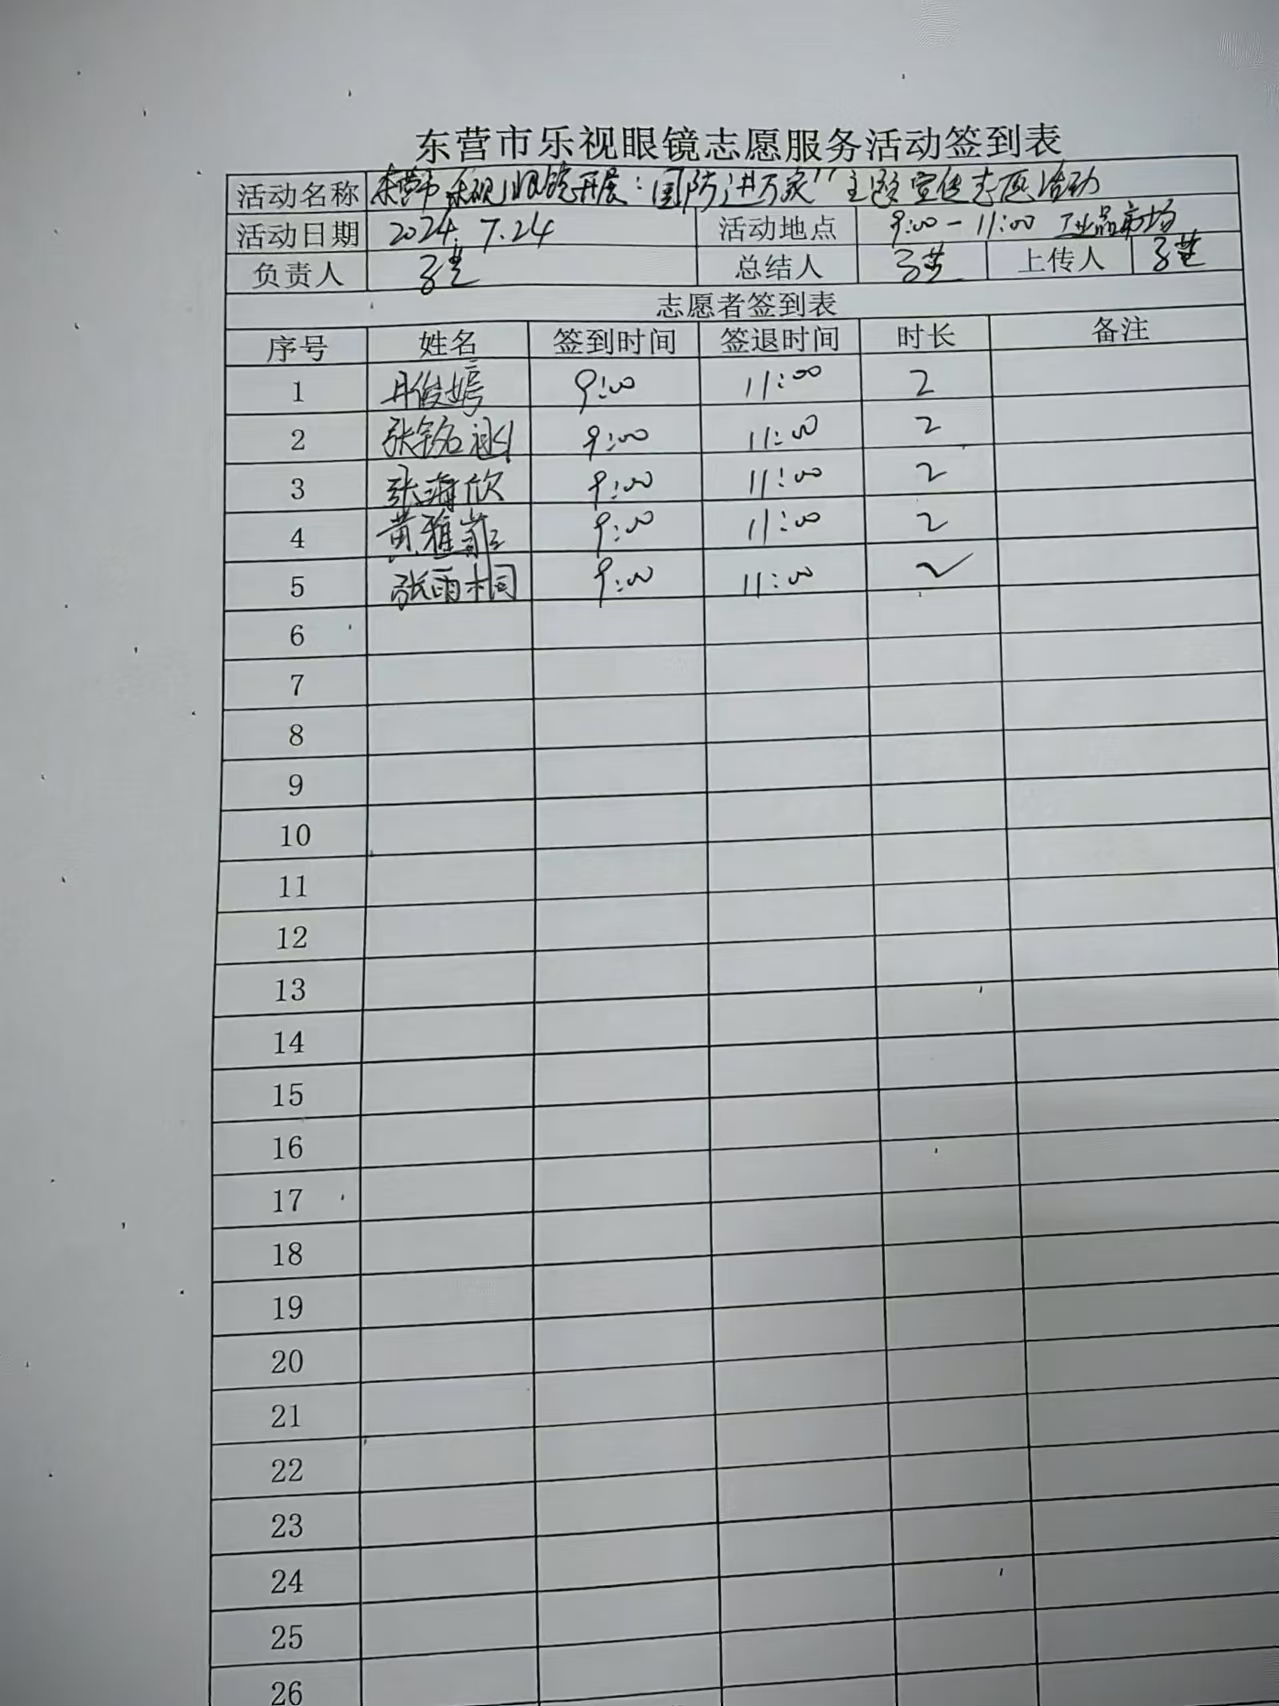 东营市乐视眼镜志愿服务活动签到表
活动名称 东营市乐视眼镜开展:国防进万家"主题宣传志愿活动
活动日期 2024.7.24 活动地点 9:00-11:00 工业品市场
负责人 总结人 上传人
志愿者签到表
序号 姓名 签到时间 签退时间 时长 备注
1 9:00 11:00 2
2 张铭 9:00 11:00 2
3 张海欣 9:00 11:00 2
4 黄雅 9:00 11:00 2
5 张雨桐 9:00 11:00 2
6
7
8
9
10
11
12
13
14
15
16
17
18
19
20
21
22
23
24
25
26